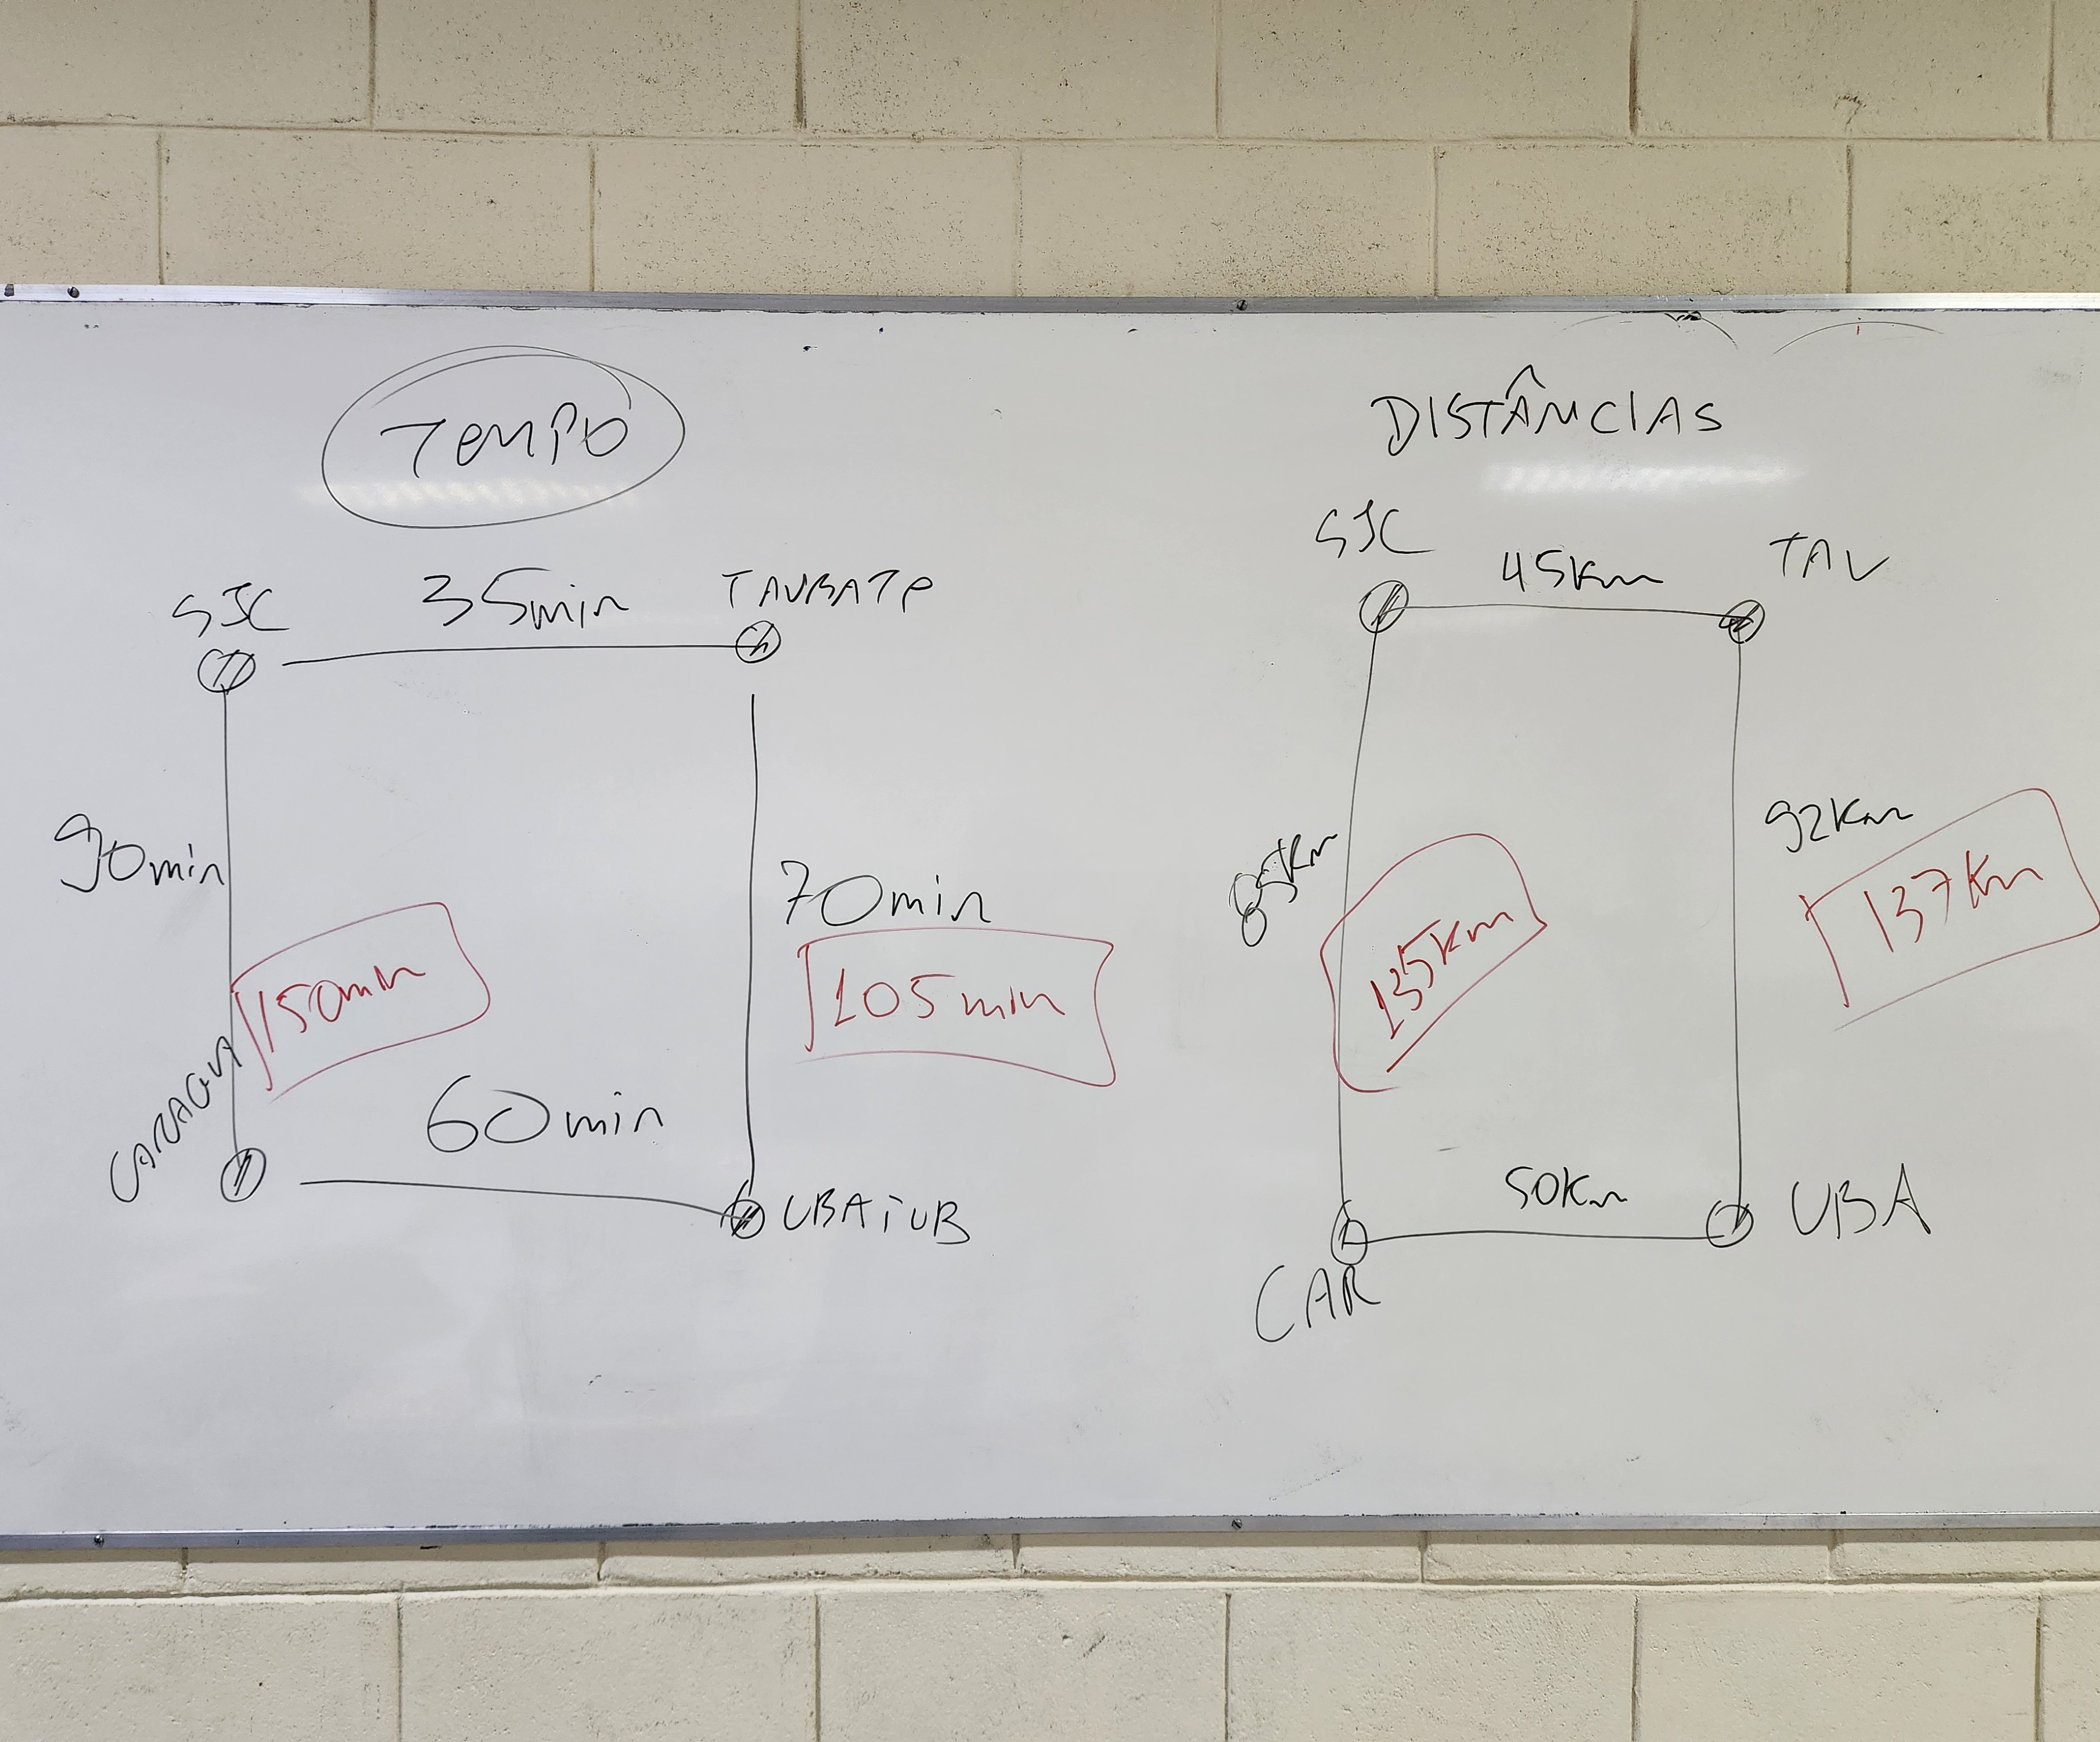 TEMPO
SJC 35min TAUBATE
90min
70min
150min
105min
CARAGUA
60min
UBATUB
DISTÂNCIAS
SJC 45Km TAU
85Km
92Km
135Km
137Km
50Km
UBA
CAR